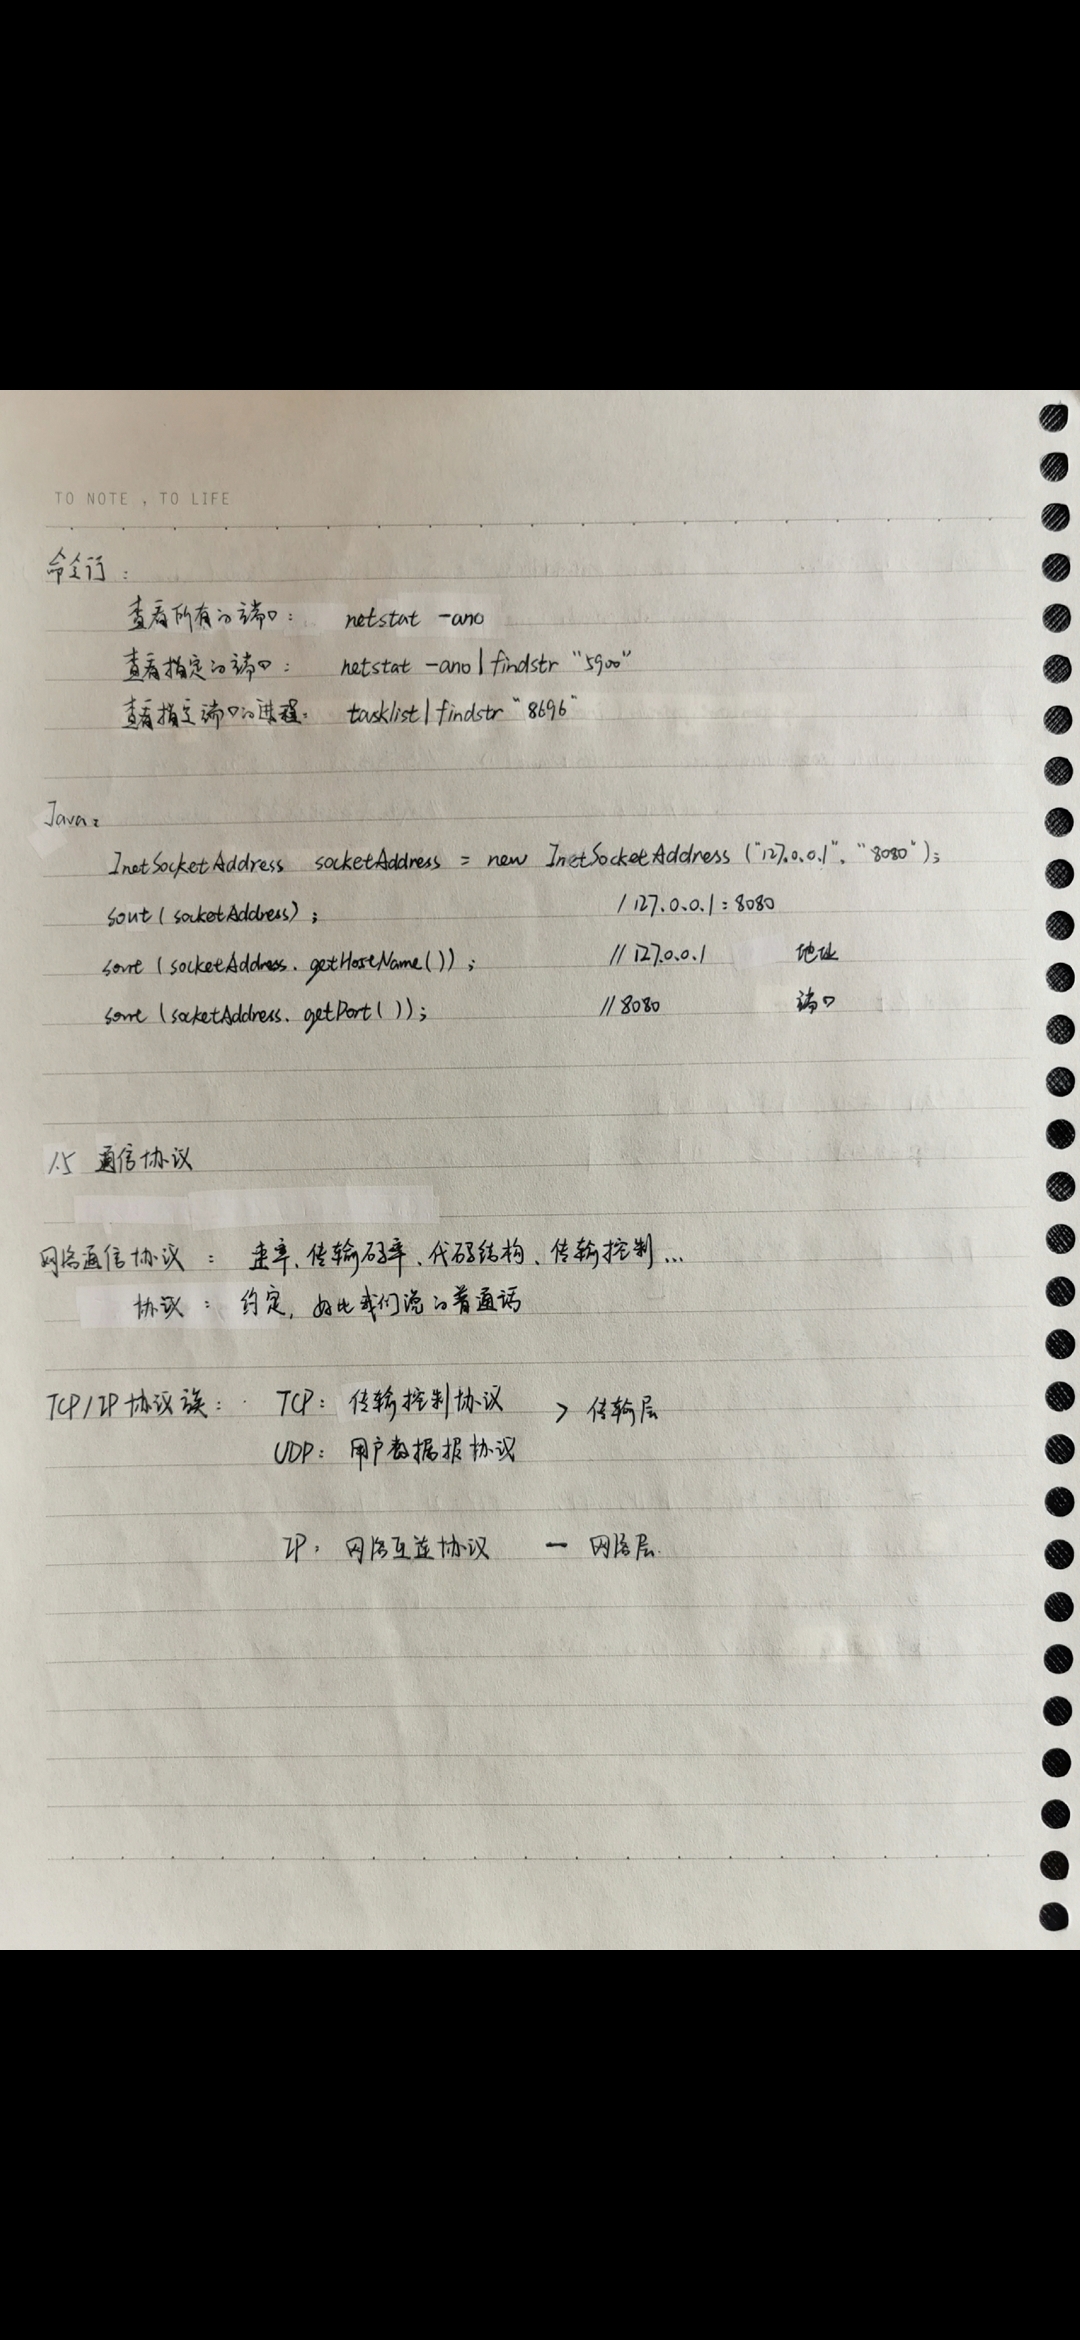 TO NOTE , TO LIFE
命令行：
查看所有的端口： netstat -ano
查看指定的端口： netstat -ano | findstr "5900"
查看指定端口的进程： tasklist | findstr "8696"
Java：
InetSocketAddress socketAddress = new InetSocketAddress ("127.0.0.1", "8080");
sout ( socketAddress) ; / 127.0.0.1 : 8080
sout ( socketAddress. getHostName( )) ; // 127.0.0.1 地址
sout ( socketAddress. getPort ( )) ; // 8080 端口
1.5 通信协议
网络通信协议： 速率、传输码率、代码结构、传输控制...
协议： 约定，好比我们说的普通话
TCP / IP 协议簇： TCP： 传输控制协议 > 传输层
UDP： 用户数据报协议
IP： 网络互连协议 — 网络层.